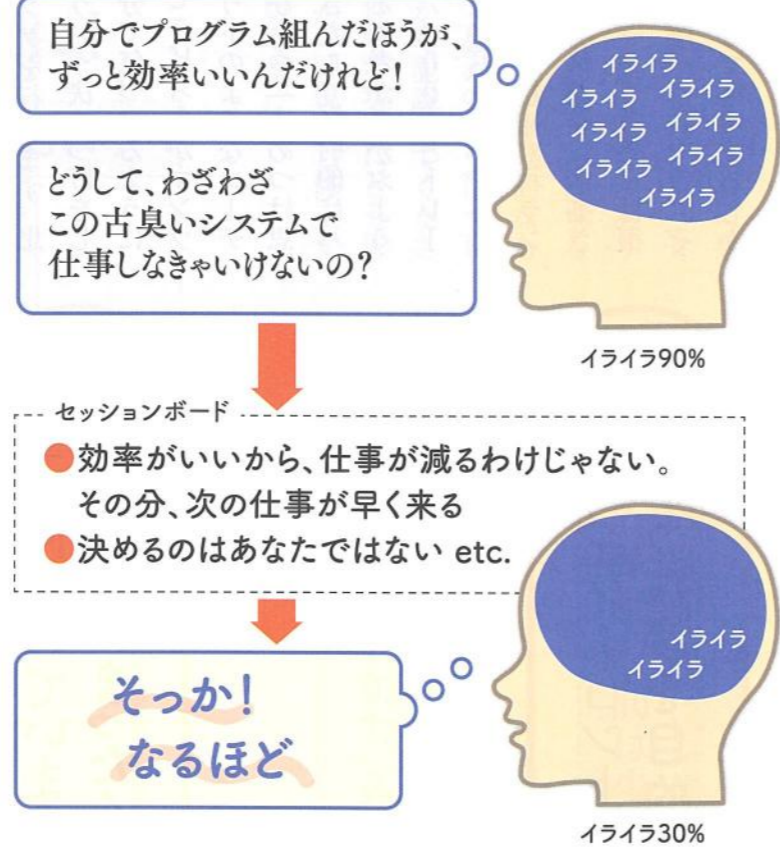 自分でプログラム組んだほうが、
ずっと効率いいんだけれど！
どうして、わざわざ
この古臭いシステムで
仕事しなきゃいけないの？
イライラ
イライラ イライラ
イライラ イライラ
イライラ イライラ
イライラ
イライラ90%
セッションボード
●効率がいいから、仕事が減るわけじゃない。
その分、次の仕事が早く来る
●決めるのはあなたではない etc.
そっか！
なるほど
イライラ
イライラ
イライラ30%